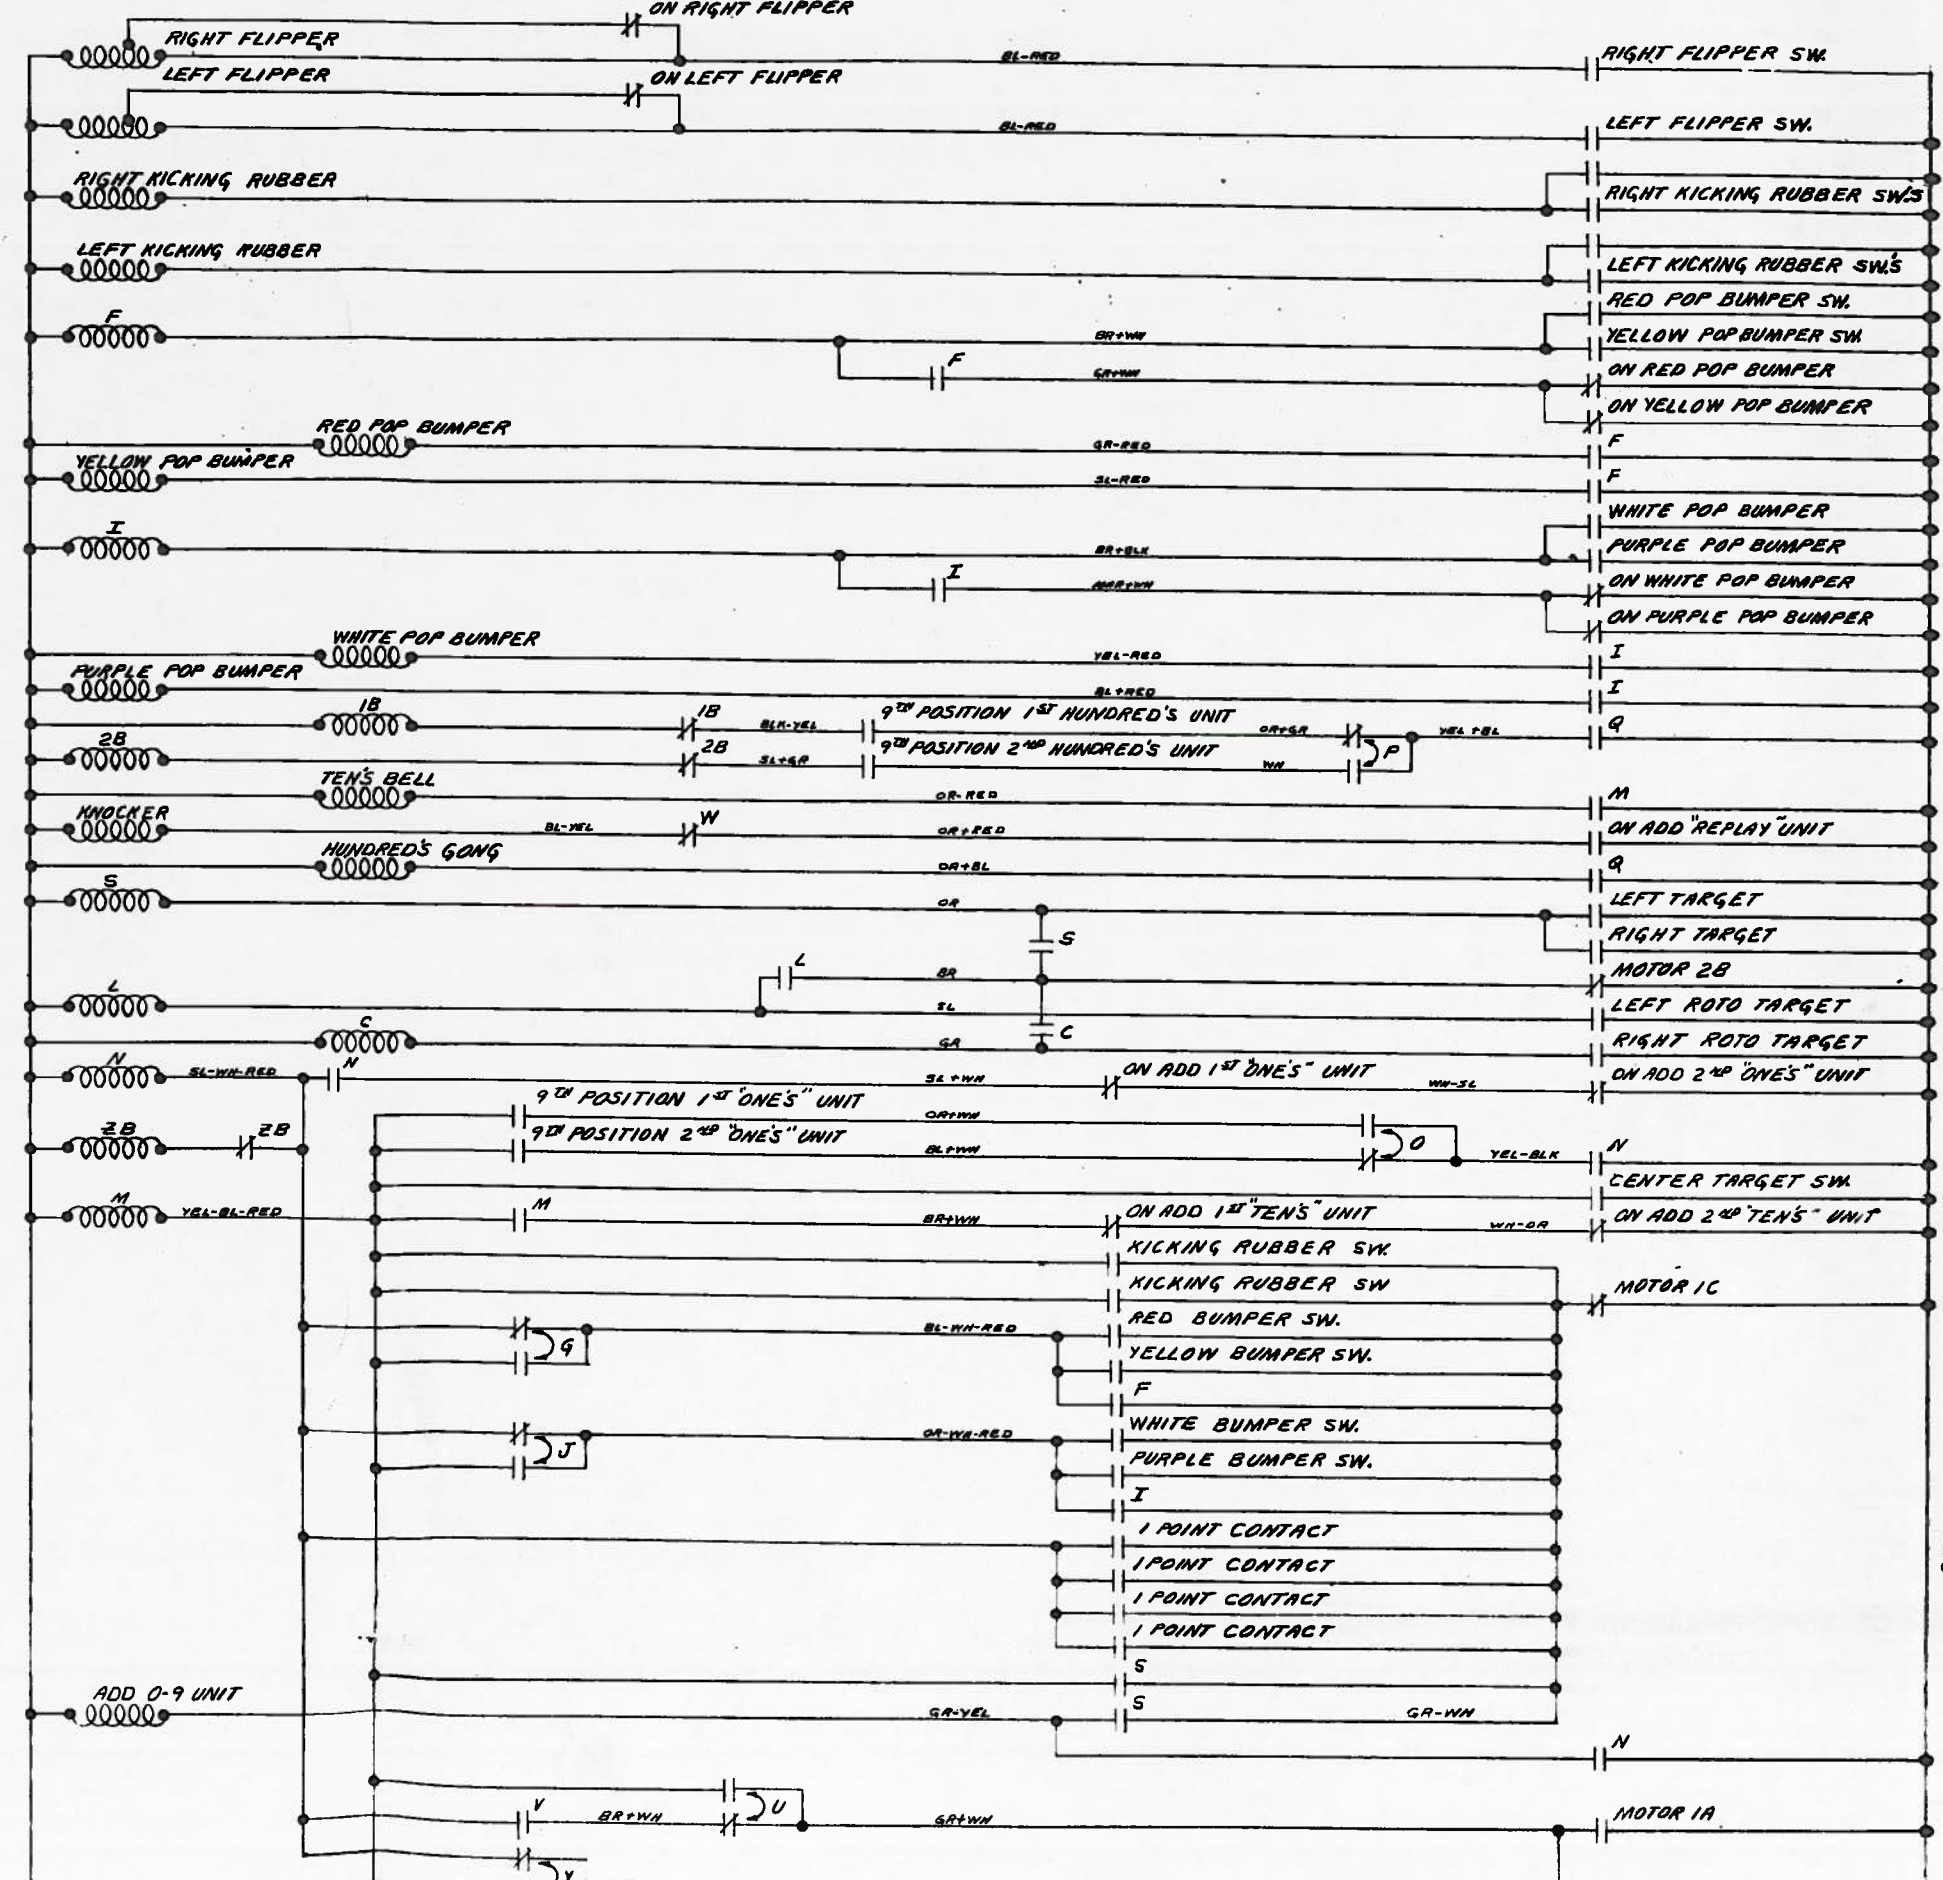 ON RIGHT FLIPPER
RIGHT FLIPPER
BL-RED
RIGHT FLIPPER SW.
LEFT FLIPPER
ON LEFT FLIPPER
BL-RED
LEFT FLIPPER SW.
RIGHT KICKING RUBBER
RIGHT KICKING RUBBER SW'S
LEFT KICKING RUBBER
LEFT KICKING RUBBER SW'S
RED POP BUMPER SW.
F
BR+WH
YELLOW POP BUMPER SW.
F
GR+WH
ON RED POP BUMPER
ON YELLOW POP BUMPER
RED POP BUMPER
GR-RED
F
YELLOW POP BUMPER
SL-RED
F
WHITE POP BUMPER
I
BR+BLK
PURPLE POP BUMPER
I
ON WHITE POP BUMPER
ON PURPLE POP BUMPER
WHITE POP BUMPER
YEL-RED
I
PURPLE POP BUMPER
BL+RED
I
1B
1B
BLK-YEL
9TH POSITION 1ST HUNDRED'S UNIT
OR+GR
YEL+BL
Q
2B
2B
SL+GR
9TH POSITION 2ND HUNDRED'S UNIT
WH
P
TEN'S BELL
OR-RED
M
KNOCKER
BL-YEL
W
OR+RED
ON ADD "REPLAY" UNIT
HUNDRED'S GONG
OR+BL
Q
S
OR
LEFT TARGET
S
RIGHT TARGET
L
BR
MOTOR 2B
L
SL
LEFT ROTO TARGET
C
C
GR
RIGHT ROTO TARGET
N
SL-WH-RED
N
SL+WH
ON ADD 1ST "ONE'S" UNIT
WH-SL
ON ADD 2ND "ONE'S" UNIT
9TH POSITION 1ST "ONE'S" UNIT
OR+WH
ZB
ZB
9TH POSITION 2ND "ONE'S" UNIT
BL+WH
O
YEL-BLK
N
CENTER TARGET SW.
M
YEL-BL-RED
M
BR+WH
ON ADD 1ST "TEN'S" UNIT
WH-OR
ON ADD 2ND "TEN'S" UNIT
KICKING RUBBER SW.
KICKING RUBBER SW
MOTOR 1C
G
BL-WH-RED
RED BUMPER SW.
YELLOW BUMPER SW.
F
J
OR-WH-RED
WHITE BUMPER SW.
PURPLE BUMPER SW.
I
1 POINT CONTACT
1 POINT CONTACT
1 POINT CONTACT
1 POINT CONTACT
S
ADD 0-9 UNIT
GR-YEL
S
GR-WH
N
V
BR+WH
U
GR+WH
MOTOR 1A